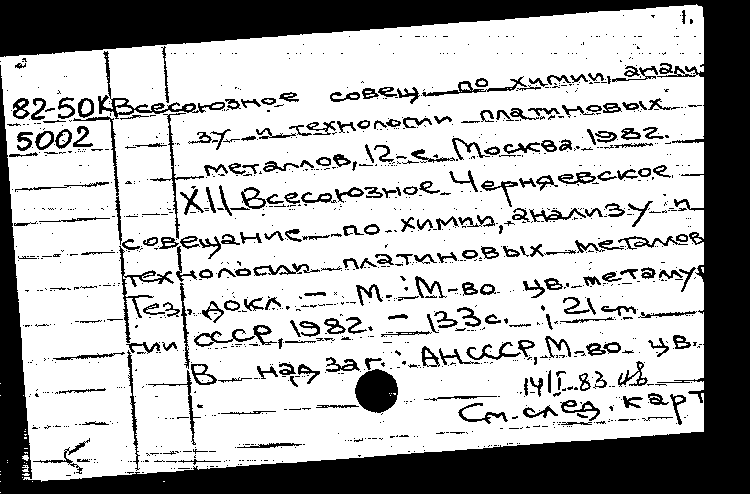 1.
82-50К Всесоюзное совещ. по химии, анали-
5002 зу и технологии платиновых
металлов, 12-е. Москва. 1982.
XII Всесоюзное Черняевское
совещание по химии, анализу и
технологии платиновых металлов
Тез. докл. – М.: М-во цв. металлур
гии СССР, 1982. – 133с. ; 21 см.
В надзаг.: АН СССР, М-во цв.
14/I-83
См. след. карт